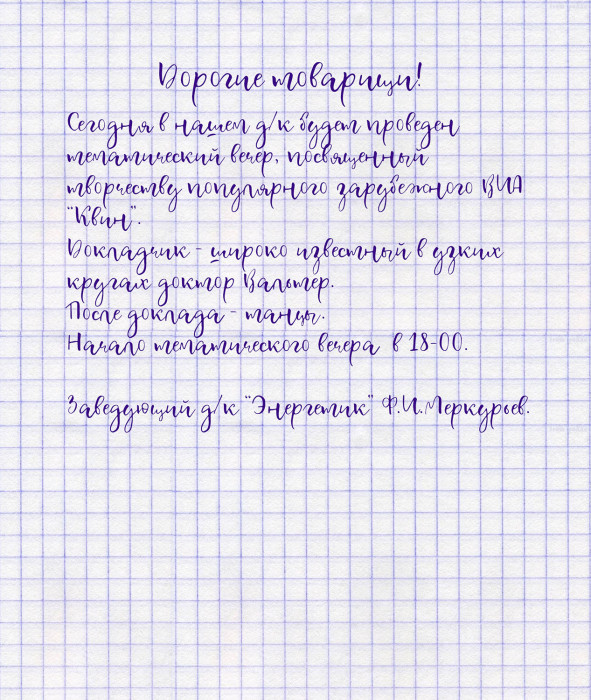 Дорогие товарищи!
Сегодня в нашем д/к будет проведен
тематический вечер, посвященный
творчеству популярного зарубежного ВИА
"Квин".
Докладчик - широко известный в узких
кругах доктор Вальтер.
После доклада - танцы.
Начало тематического вечера в 18-00.
Заведующий д/к "Энергетик" Ф.И.Меркурьев.